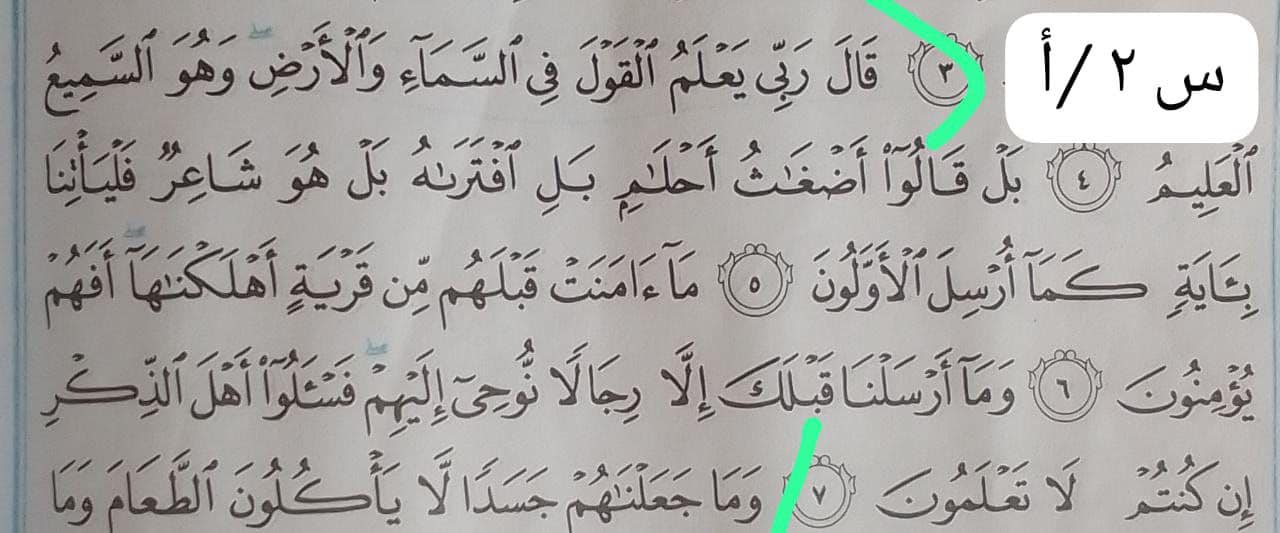 س ٢ /أ
٣ قَالَ رَبِّى يَعۡلَمُ ٱلۡقَوۡلَ فِى ٱلسَّمَآءِ وَٱلۡأَرۡضِۖ وَهُوَ ٱلسَّمِيعُ
ٱلۡعَلِيمُ ٤ بَلۡ قَالُوٓا۟ أَضۡغَـٰثُ أَحۡلَـٰمِۭ بَلِ ٱفۡتَرَىٰهُ بَلۡ هُوَ شَاعِرٌ فَلۡيَأۡتِنَا
بِـَٔايَةٍ كَمَآ أُرۡسِلَ ٱلۡأَوَّلُونَ ٥ مَآ ءَامَنَتۡ قَبۡلَهُم مِّن قَرۡيَةٍ أَهۡلَكۡنَـٰهَآۖ أَفَهُمۡ
يُؤۡمِنُونَ ٦ وَمَآ أَرۡسَلۡنَا قَبۡلَكَ إِلَّا رِجَالًا نُّوحِىٓ إِلَيۡهِمۡۖ فَسۡـَٔلُوٓا۟ أَهۡلَ ٱلذِّكۡرِ
إِن كُنتُمۡ لَا تَعۡلَمُونَ ٧ وَمَا جَعَلۡنَـٰهُمۡ جَسَدًا لَّا يَأۡكُلُونَ ٱلطَّعَامَ وَمَا